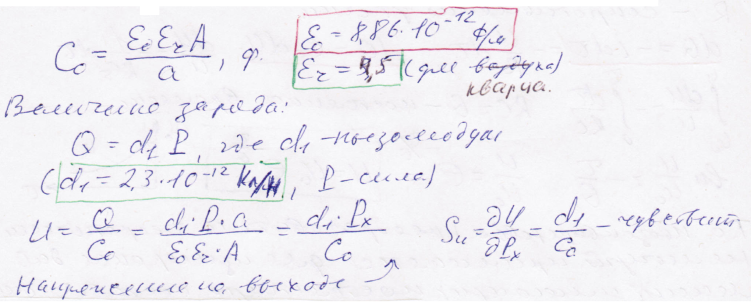 C₀ = ε₀ε₂A / a , ф. ε₀ = 8,86·10⁻¹² ф/м
ε₂ = 4,5 (для воздуха) кварца.
Величина заряда:
Q = d₁ P, где d₁ - пьезомодуль
(d₁ = 2,3·10⁻¹² Кл/Н, P - сила)
U = Q/C₀ = d₁·P·a / ε₀ε₂·A = d₁·Pₓ / C₀ Sᵤ = ∂U/∂Pₓ = d₁/C₀ - чувствит
Напряжение на выходе